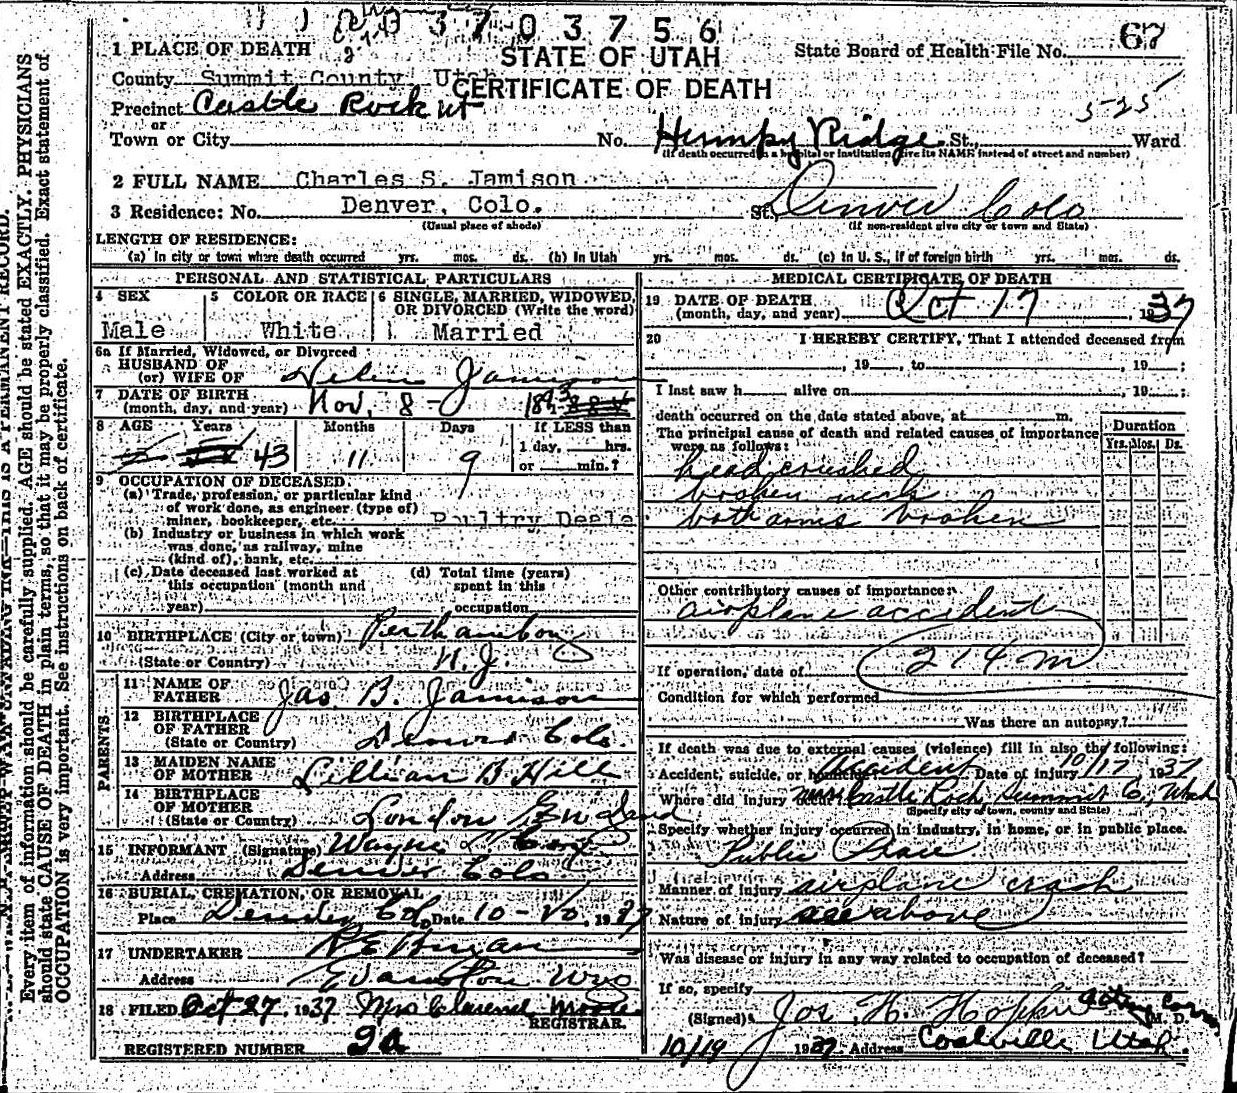 3 7 0 3 7 5 6
67
1 PLACE OF DEATH
STATE OF UTAH
State Board of Health File No.
County Summit County, Utah
CERTIFICATE OF DEATH
Precinct Castle Rock Ut
5-25
or
Town or City No. Humpy Ridge St., Ward
(If death occurred in a hospital or institution give its NAME instead of street and number)
2 FULL NAME Charles S. Jamison
3 Residence: No. Denver, Colo. St. Denver Colo
(Usual place of abode) (If non-resident give city or town and State)
LENGTH OF RESIDENCE:
(a) In city or town where death occurred yrs. mos. ds. (b) In Utah yrs. mos. ds. (c) In U. S., if of foreign birth yrs. mos. ds.
PERSONAL AND STATISTICAL PARTICULARS
4 SEX 5 COLOR OR RACE 6 SINGLE, MARRIED, WIDOWED, OR DIVORCED (Write the word)
Male White Married
6a If Married, Widowed, or Divorced
HUSBAND OF
(or) WIFE OF Helen Jamison
7 DATE OF BIRTH
(month, day, and year) Nov. 8 - 1893
8 AGE Years Months Days If LESS than
43 11 9 1 day, hrs.
or min.?
9 OCCUPATION OF DECEASED
(a) Trade, profession, or particular kind
of work done, as engineer (type of)
miner, bookkeeper, etc. Poultry Deale
(b) Industry or business in which work
was done, as railway, mine
(kind of), bank, etc.
(c) Date deceased last worked at (d) Total time (years)
this occupation (month and spent in this
year) occupation
10 BIRTHPLACE (City or town) Perth amboy
(State or Country) N. J.
PARENTS
11 NAME OF
FATHER Jas. B. Jamison
12 BIRTHPLACE
OF FATHER
(State or Country) Denver Colo.
13 MAIDEN NAME
OF MOTHER Lillian B Hill
14 BIRTHPLACE
OF MOTHER
(State or Country) London England
15 INFORMANT (Signature) Wayne
Address Denver Colo
16 BURIAL, CREMATION, OR REMOVAL
Place Denver Col. Date 10-20, 1937
17 UNDERTAKER
Address Evanston Wyo
18 FILED Oct 27, 1937 Mrs Clarence Moore
REGISTRAR.
REGISTERED NUMBER
MEDICAL CERTIFICATE OF DEATH
19 DATE OF DEATH
(month, day, and year) Oct 17, 1937
20 I HEREBY CERTIFY, That I attended deceased from
, 19 , to , 19 ;
I last saw h alive on , 19 ;
death occurred on the date stated above, at m.
The principal cause of death and related causes of importance
were as follows:
Duration
Yrs. Mos. Ds.
head crushed
broken neck
both arms broken
Other contributory causes of importance:
airplane accident
214m
If operation, date of
Condition for which performed
Was there an autopsy?
If death was due to external causes (violence) fill in also the following:
Accident, suicide, or homicide? Accident Date of injury 10/17 1937
Where did injury occur? near Castle Rock, Summit Co., Utah
(Specify city or town, county and State)
Specify whether injury occurred in industry, in home, or in public place.
Public Place
Manner of injury airplane crash
Nature of injury see above
Was disease or injury in any way related to occupation of deceased?
If so, specify
(Signed) Jos. H. Hopkin M. D.
10/19 1937 Address Coalville Utah
Every item of information should be carefully supplied. AGE should be stated EXACTLY. PHYSICIANS
should state CAUSE OF DEATH in plain terms, so that it may be properly classified. Exact statement of
OCCUPATION is very important. See instructions on back of certificate.